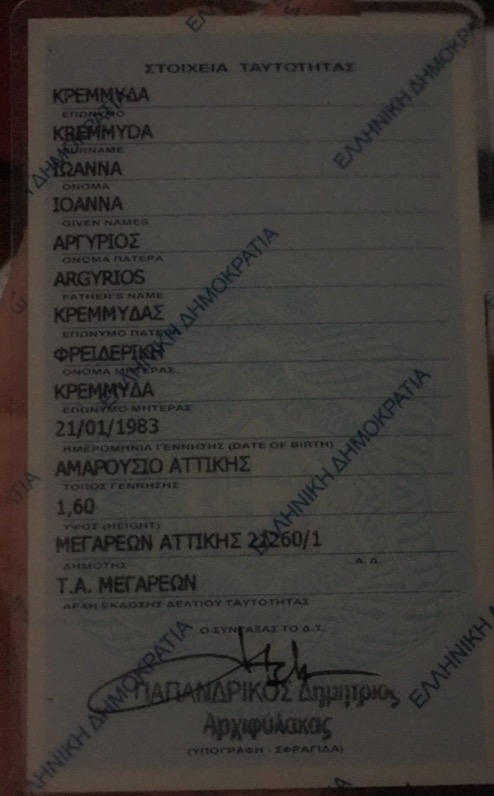 ΣΤΟΙΧΕΙΑ ΤΑΥΤΟΤΗΤΑΣ
ΚΡΕΜΜΥΔΑ
ΕΠΩΝΥΜΟ
KREMMYDA
SURNAME
ΙΩΑΝΝΑ
ΟΝΟΜΑ
IOANNA
GIVEN NAMES
ΑΡΓΥΡΙΟΣ
ΟΝΟΜΑ ΠΑΤΕΡΑ
ARGYRIOS
FATHER'S NAME
ΚΡΕΜΜΥΔΑΣ
ΕΠΩΝΥΜΟ ΠΑΤΕΡΑ
ΦΡΕΙΔΕΡΙΚΗ
ΟΝΟΜΑ ΜΗΤΕΡΑΣ
ΚΡΕΜΜΥΔΑ
ΕΠΩΝΥΜΟ ΜΗΤΕΡΑΣ
21/01/1983
ΗΜΕΡΟΜΗΝΙΑ ΓΕΝΝΗΣΗΣ (DATE OF BIRTH)
ΑΜΑΡΟΥΣΙΟ ΑΤΤΙΚΗΣ
ΤΟΠΟΣ ΓΕΝΝΗΣΗΣ
1,60
ΥΨΟΣ (HEIGHT)
ΜΕΓΑΡΕΩΝ ΑΤΤΙΚΗΣ 21260/1
ΔΗΜΟΤΗΣ Α.Δ.
Τ.Α. ΜΕΓΑΡΕΩΝ
ΑΡΧΗ ΕΚΔΟΣΗΣ ΔΕΛΤΙΟΥ ΤΑΥΤΟΤΗΤΑΣ
Ο ΣΥΝΤΑΞΑΣ ΤΟ Δ.Τ.
ΠΑΠΑΝΔΡΙΚΟΣ Δημήτριος
Αρχιφύλακας
(ΥΠΟΓΡΑΦΗ - ΣΦΡΑΓΙΔΑ)
ΕΛΛΗΝΙΚΗ ΔΗΜΟΚΡΑΤΙΑ
ΕΛΛΗΝΙΚΗ ΔΗΜΟΚΡΑΤΙΑ
ΕΛΛΗΝΙΚΗ ΔΗΜΟΚΡΑΤΙΑ
ΕΛΛΗΝΙΚΗ ΔΗΜΟΚΡΑΤΙΑ